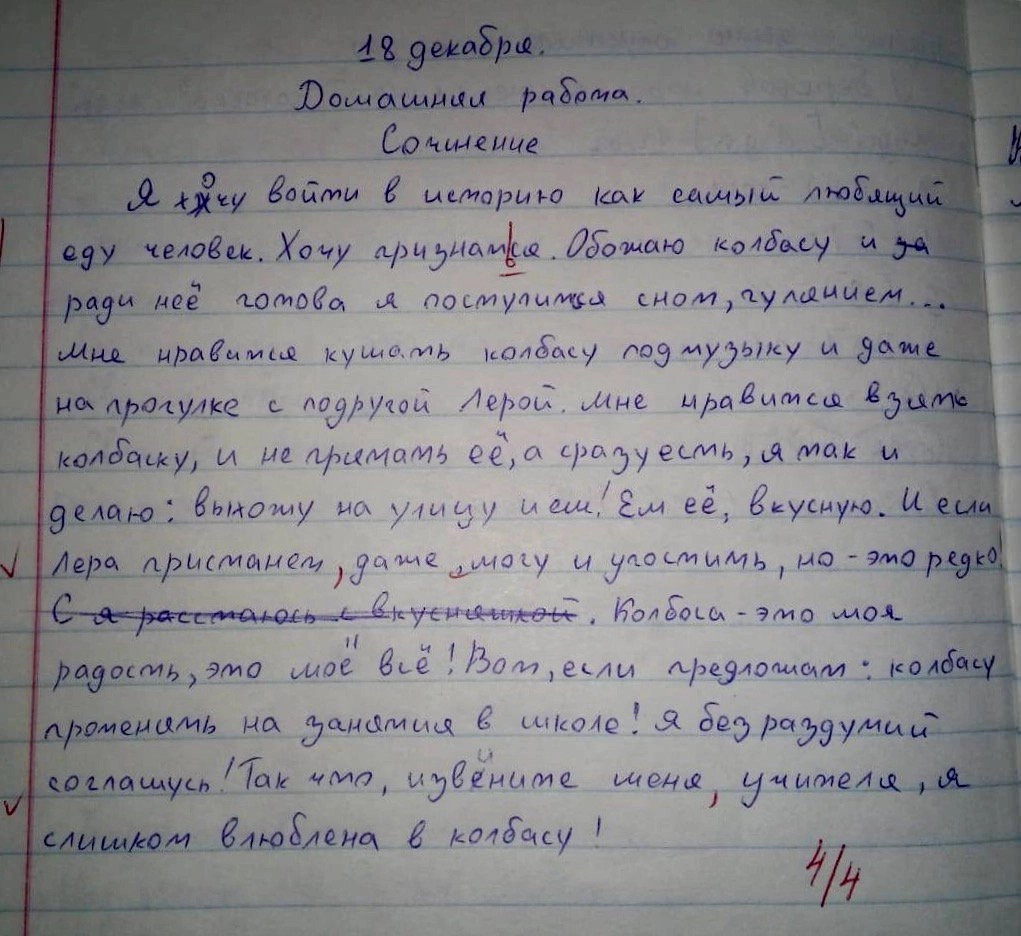 18 декабря.
Домашняя работа.
Сочинение
Я хочу войти в историю как самый любящий
еду человек. Хочу признаться. Обожаю колбасу и за
ради неё готова я поступится сном, гулянием...
Мне нравится кушать колбасу под музыку и даже
на прогулке с подругой Лерой. Мне нравится взять
колбаску, и не прятать её, а сразу есть, я так и
делаю: выхожу на улицу и ем! Ем её, вкусную. И если
Лера пристанет, даже могу и угостить, но - это редко!
С я расстаюсь с вкусняшкой. Колбаса - это моя
радость, это моё всё! Вот, если предложат: колбасу
променять на занятия в школе! Я без раздумий
соглашусь! Так что, извините меня, учителя, я
слишком влюблена в колбасу!
4/4